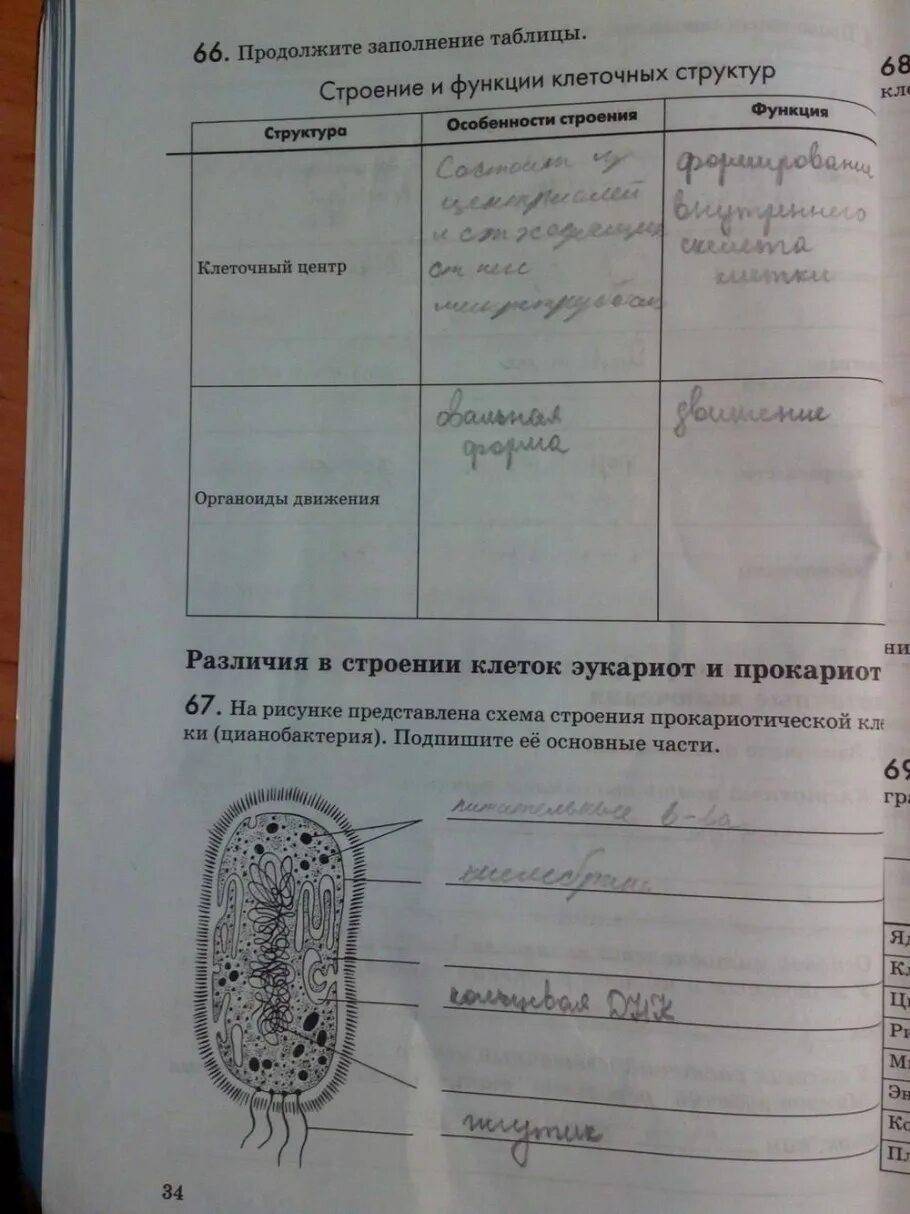 66. Продолжите заполнение таблицы.
Строение и функции клеточных структур
Структура
Особенности строения
Функция
Клеточный центр
Состоит из
центриолей
и отходящих
от них
микротрубочек
формирование
внутреннего
скелета
клетки
Органоиды движения
овальная
форма
движение
Различия в строении клеток эукариот и прокариот
67. На рисунке представлена схема строения прокариотической кле
ки (цианобактерия). Подпишите её основные части.
питательные в-ва
кольцевая ДНК
жгутик
34
68
кле
ни
69
гра
Яд
Кл
Ци
Ри
Ми
Эн
Ко
Пл